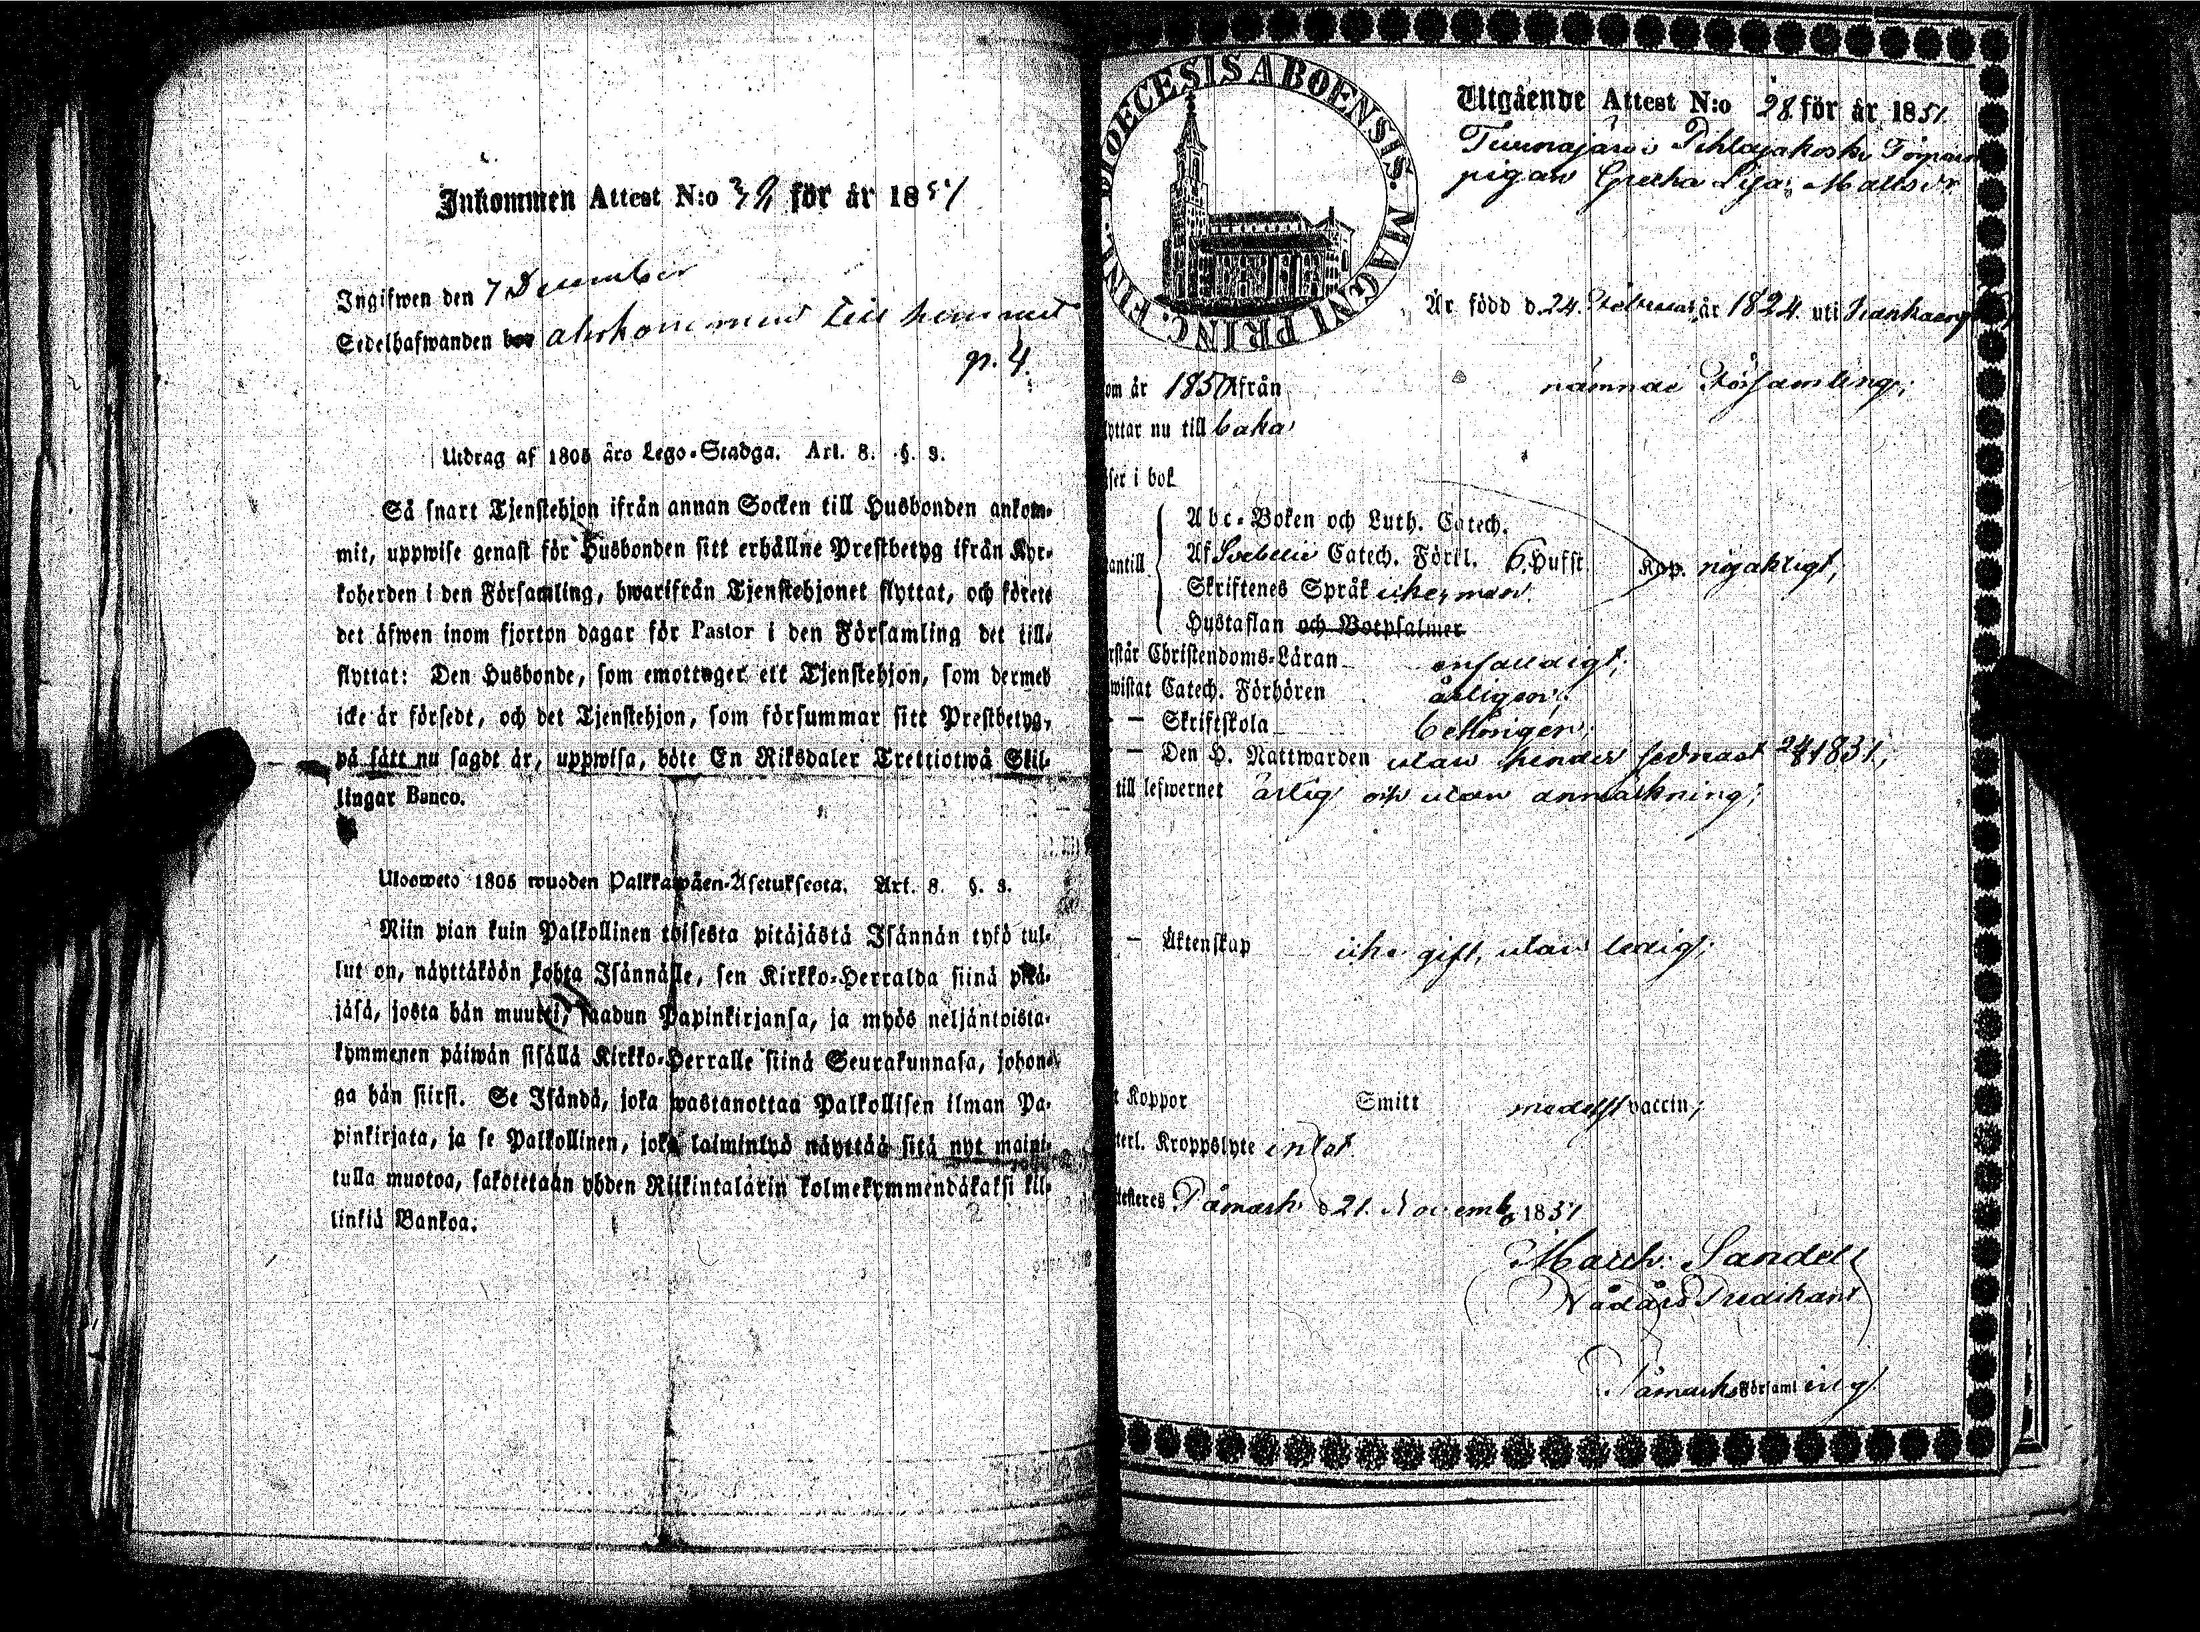 Inkommen Attest N:o 39 för år 1851
Ingifwen den 7 December
Sedelhafwanden bor till hemmet
p. 4.
Utdrag af 1805 års Lego-Stadga. Art. 8. §. 3.
Så snart Tjenstehjon ifrån annan Socken till Husbonden ankom-
mit, uppwise genast för Husbonden sitt erhållne Prestbetyg ifrån Kyr-
koherden i den Församling, hwarifrån Tjenstehjonet flyttat, och förete
det äfwen inom fjorton dagar för Pastor i den Församling det till-
flyttat: Den Husbonde, som emottager ett Tjenstehjon, som dermed
icke är försedt, och det Tjenstehjon, som försummar sitt Prestbetyg,
på sätt nu sagdt är, uppwisa, böte En Riksdaler Trettiotwå Skil-
lingar Banco.
Ulosweto 1805 wuoden Palkkawäen-Asetuksesta. Art. 8. §. 3.
Niin pian kuin Palkollinen toisesta pitäjästä Isännän tykö tul-
lut on, näyttäköön kohta Isännälle, sen Kirkko-Herralda siinä pitä-
jäsä, josta hän muutti, saadun Papinkirjansa, ja myös neljäntoista-
kymmenen päiwän sisällä Kirkko-Herralle siinä Seurakunnasa, johon-
ga hän siirsi. Se Isändä, joka wastanottaa Palkollisen ilman Pa-
pinkirjata, ja se Palkollinen, joka laiminlyö näyttää sitä nyt maini-
tulla muotoa, sakotetaan yhden Riikintalarin kolmekymmendäkaksi kil-
linkiä Bankoa.
DIOECESIS ABOENSIS. MAGNI PRINC. FINL.
Utgående Attest N:o 28 för år 1851
Pihlajakoski
pigan Gretha Lisa Mattsdr
Är född d. 24. Februari år 1824 uti
om år 1850 ifrån nämnde Församling;
yttar nu till baka
ser i bok
Abc-Boken och Luth. Catech.
antill Af Svebelii Catech. Förkl. 6. Hufst. Kap. nöjaktigt,
Skriftenes Språk icke, men
Hustaflan och Botpsalmer
rstår Christendoms-Läran enfaldigt;
wistat Catech. Förhören årligen;
— Skriftskola behörigen;
— Den H. Nattwarden utan hinder sednast 1851;
till lefwernet ärlig och utan anmärkning;
— Äktenskap icke gift, utan ledig;
t Koppor Smitt medelst vaccin;
terl. Kroppslyte intet
testeres Påmark d 21. Novemb 1851
March. Sandell
Nådårs Predikant
Påmarks Församling.